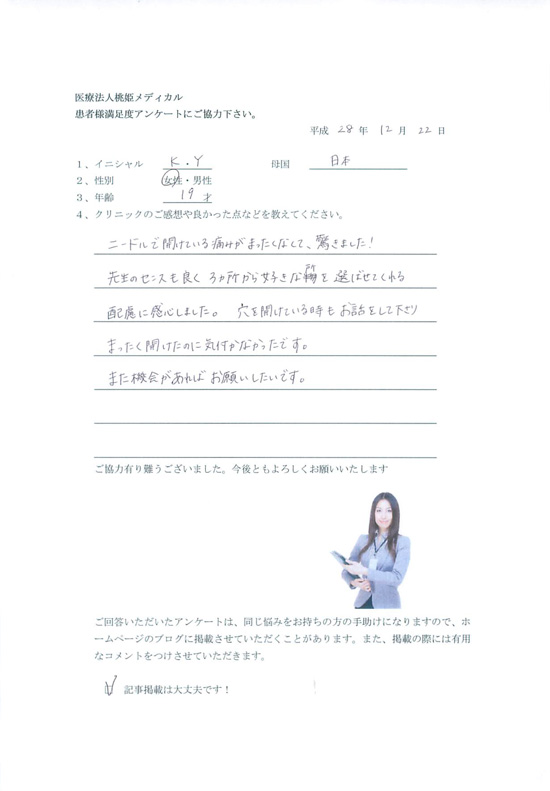 医療法人桃姫メディカル
患者様満足度アンケートにご協力下さい。
平成 28 年 12 月 22 日
1、イニシャル K.Y 母国 日本
2、性別 女性・男性
3、年齢 19 才
4、クリニックのご感想や良かった点などを教えてください。
ニードルで開けている痛みがまったくなくて、驚きました!
先生のセンスも良く 3ヵ所から好きな場所を選ばせてくれる
配慮に感心しました。 穴を開けている時もお話をして下さり
まったく開けたのに気付かなかったです。
また機会があればお願いしたいです。
ご協力有り難うございました。今後ともよろしくお願いいたします
ご回答いただいたアンケートは、同じ悩みをお持ちの方の手助けになりますので、ホ
ームページのブログに掲載させていただくことがあります。また、掲載の際には有用
なコメントをつけさせていただきます。
記事掲載は大丈夫です!